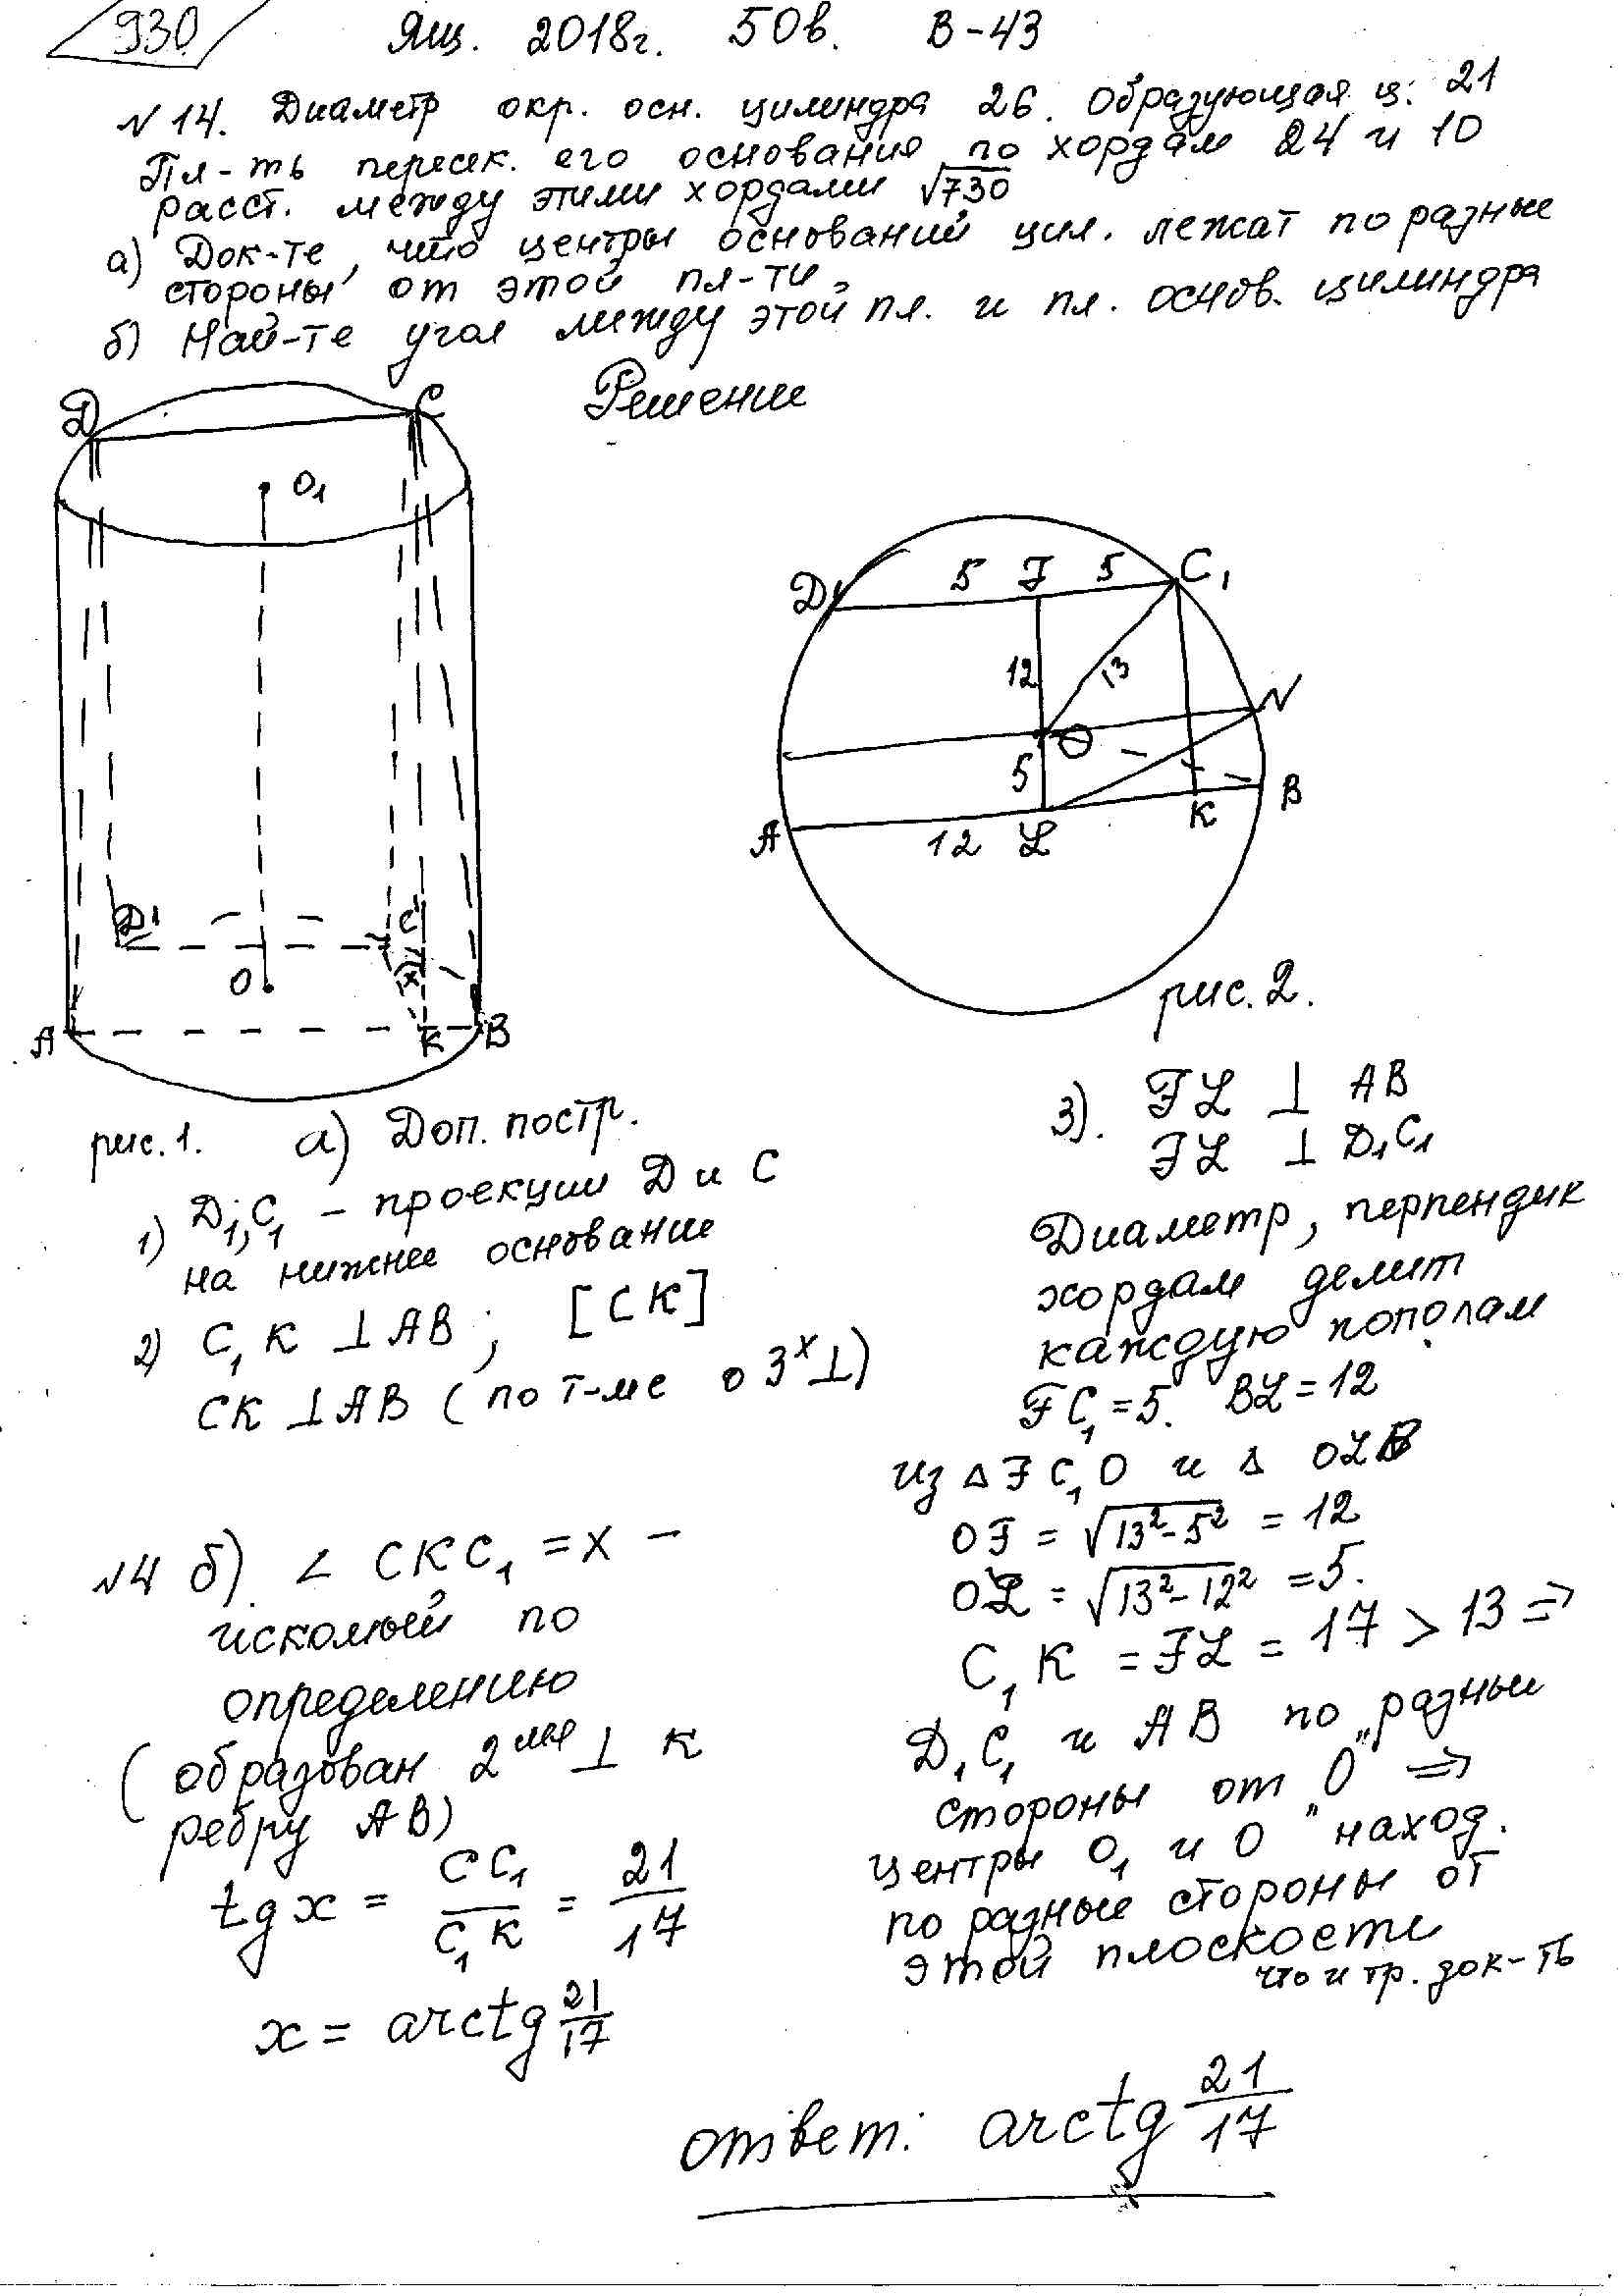 930 Ящ. 2018г. 50в. В-43
№14. Диаметр окр. осн. цилиндра 26. Образующая ц. 21
Пл-ть пересек. его основания по хордам 24 и 10
расст. между этими хордами √730
а) Док-те, что центры оснований цил. лежат по разные
стороны от этой пл-ти.
б) Най-те угол между этой пл. и пл. основ. цилиндра
Решение
Д C
O1
Д1 C1
O x
A K B
рис. 1.
Д1 5 F 5 C1
12 13
N
O
5
A 12 L K B
рис. 2.
а) Доп. постр.
1) Д1; C1 – проекции Д и C
на нижнее основание
2) C1K ⊥ AB; [CK]
CK ⊥ AB (по т-ме о 3х ⊥)
3). FL ⊥ AB
FL ⊥ Д1C1
Диаметр, перпендик
хордам делит
каждую пополам
FC1 = 5. BL = 12
из Δ FC1O и Δ OLB
OF = √13² - 5² = 12
OL = √13² - 12² = 5.
C1K = FL = 17 > 13 ⇒
Д1C1 и AB по разные
стороны от "O" ⇒
центры O1 и O наход.
по разные стороны от
этой плоскости
что и тр. док-ть
№4 б). ∠ CKC1 = x –
искомый по
определению
(образован 2мя ⊥ к
ребру AB)
tg x = CC1 / C1K = 21 / 17
x = arctg 21/17
ответ: arctg 21/17